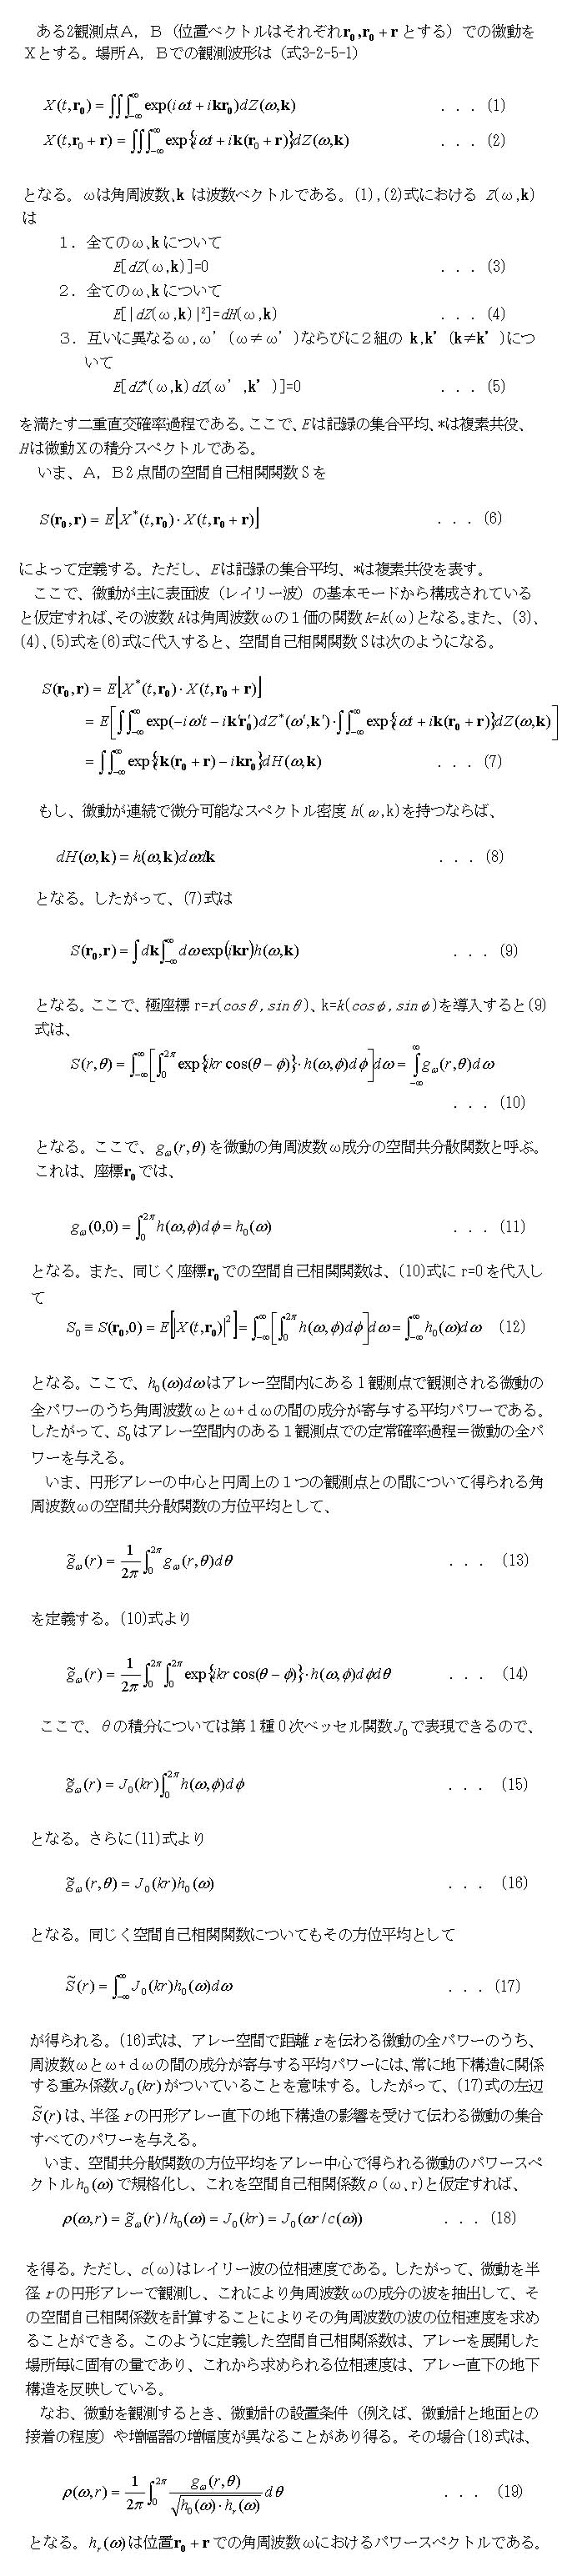 ある2観測点Ａ，Ｂ（位置ベクトルはそれぞれr₀,r₀ + r とする）での微動を
Ｘとする。場所Ａ，Ｂでの観測波形は（式3-2-5-1）
X(t,r₀) = ∭_{-∞}^{∞} exp(iωt + ikr₀)dZ(ω,k) ．．．(1)
X(t,r₀ + r) = ∭_{-∞}^{∞} exp{iωt + ik(r₀ + r)}dZ(ω,k) ．．．(2)
となる。ωは角周波数、k は波数ベクトルである。(1),(2)式における Z(ω,k)
は
１．全てのω、kについて
E[dZ(ω,k)]=0 ．．．(3)
２．全てのω、kについて
E[|dZ(ω,k)|²]=dH(ω,k) ．．．(4)
３．互いに異なるω,ω’（ω≠ω’）ならびに２組の k,k’（k≠k’）につ
いて
E[dZ*(ω,k)dZ(ω’,k’)]=0 ．．．(5)
を満たす二重直交確率過程である。ここで、Eは記録の集合平均、*は複素共役、
Hは微動Ｘの積分スペクトルである。
いま、Ａ，Ｂ2点間の空間自己相関関数Ｓを
S(r₀,r) = E⌊X*(t,r₀)·X(t,r₀ + r)⌋ ．．．(6)
によって定義する。ただし、Eは記録の集合平均、*は複素共役を表す。
ここで、微動が主に表面波（レイリー波）の基本モードから構成されている
と仮定すれば、その波数kは角周波数ωの１価の関数k=k(ω)となる。また、(3)、
(4)、(5)式を(6)式に代入すると、空間自己相関関数Ｓは次のようになる。
S(r₀,r) = E⌊X*(t,r₀)·X(t,r₀ + r)⌋
= E[∬_{-∞}^{∞} exp(−iω't − ik'r₀')dZ*(ω',k')·∬_{-∞}^{∞} exp{ωt + ik(r₀ + r)}dZ(ω,k)]
= ∬_{-∞}^{∞} exp{k(r₀ + r) − ikr₀}dH(ω,k) ．．．(7)
もし、微動が連続で微分可能なスペクトル密度 h(ω,k)を持つならば、
dH(ω,k) = h(ω,k)dωdk ．．．(8)
となる。したがって、(7)式は
S(r₀,r) = ∫dk∫_{-∞}^{∞} dω exp(ikr)h(ω,k) ．．．(9)
となる。ここで、極座標 r=r(cosθ,sinθ)、k=k(cosφ,sinφ)を導入すると(9)
式は、
S(r,θ) = ∫_{-∞}^{∞} [∫₀^{2π} exp{ikr cos(θ − ϕ)}·h(ω,ϕ)dϕ]dω = ∫_{-∞}^{∞} g_ω(r,θ)dω
．．．(10)
となる。ここで、g_ω(r,θ)を微動の角周波数ω成分の空間共分散関数と呼ぶ。
これは、座標r₀では、
g_ω(0,0) = ∫₀^{2π} h(ω,ϕ)dϕ = h₀(ω) ．．．(11)
となる。また、同じく座標r₀での空間自己相関関数は、(10)式に r=0を代入し
て
S₀ ≡ S(r₀,0) = E[|X(t,r₀)|²] = ∫_{-∞}^{∞} [∫₀^{2π} h(ω,ϕ)dϕ]dω = ∫_{-∞}^{∞} h₀(ω)dω (12)
となる。ここで、h₀(ω)dωはアレー空間内にある１観測点で観測される微動の
全パワーのうち角周波数ωとω+ｄωの間の成分が寄与する平均パワーである。
したがって、S₀はアレー空間内のある１観測点での定常確率過程＝微動の全パ
ワーを与える。
いま、円形アレーの中心と円周上の１つの観測点との間について得られる角
周波数ωの空間共分散関数の方位平均として、
g̃_ω(r) = 1/2π ∫₀^{2π} g_ω(r,θ)dθ ．．．(13)
を定義する。(10)式より
g̃_ω(r) = 1/2π ∫₀^{2π} ∫₀^{2π} exp{ikr cos(θ − ϕ)}·h(ω,ϕ)dϕdθ ．．．(14)
ここで、θの積分については第１種０次ベッセル関数J₀で表現できるので、
g̃_ω(r) = J₀(kr)∫₀^{2π} h(ω,ϕ)dϕ ．．．(15)
となる。さらに(11)式より
g̃_ω(r,θ) = J₀(kr)h₀(ω) ．．．(16)
となる。同じく空間自己相関関数についてもその方位平均として
S̃(r) = ∫_{-∞}^{∞} J₀(kr)h₀(ω)dω ．．．(17)
が得られる。(16)式は、アレー空間で距離 r を伝わる微動の全パワーのうち、
周波数ωとω+ｄωの間の成分が寄与する平均パワーには、常に地下構造に関係
する重み係数J₀(kr)がついていることを意味する。したがって、(17)式の左辺
S̃(r)は、半径 r の円形アレー直下の地下構造の影響を受けて伝わる微動の集合
すべてのパワーを与える。
いま、空間共分散関数の方位平均をアレー中心で得られる微動のパワースペ
クトルh₀(ω)で規格化し、これを空間自己相関係数ρ(ω,r)と仮定すれば、
ρ(ω,r) = g̃_ω(r)/h₀(ω) = J₀(kr) = J₀(ωr/c(ω)) ．．．(18)
を得る。ただし、c(ω)はレイリー波の位相速度である。したがって、微動を半
径 r の円形アレーで観測し、これにより角周波数ωの成分の波を抽出して、そ
の空間自己相関係数を計算することによりその角周波数の波の位相速度を求め
ることができる。このように定義した空間自己相関係数は、アレーを展開した
場所毎に固有の量であり、これから求められる位相速度は、アレー直下の地下
構造を反映している。
なお、微動を観測するとき、微動計の設置条件（例えば、微動計と地面との
接着の程度）や増幅器の増幅度が異なることがあり得る。その場合(18)式は、
ρ(ω,r) = 1/2π ∫₀^{2π} g_ω(r,θ)/√(h₀(ω)·h_r(ω)) dθ ．．．(19)
となる。h_r(ω)は位置r₀ + r での角周波数ωにおけるパワースペクトルである。